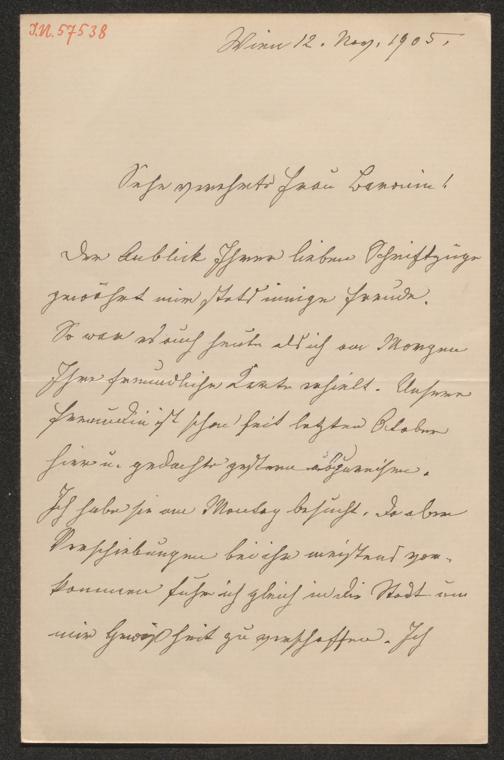 I.N. 57538
Wien 12. Nov. 1905.
Sehr verehrte Frau Baronin!
Der Anblick Ihrer lieben Schriftzüge
gewährt mir stets innige Freude.
So war es auch heute als ich am Morgen
Ihre freundliche Karte erhielt. Unsere
Freundin ist schon seit letzten Oktober
hier u. gedachte gestern abzureisen.
Ich habe sie am Montag besucht. Da aber
Verschiebungen bei ihr meistens vor-
kommen fuhr ich gleich in die Stadt um
mir Gewißheit zu verschaffen. Ich